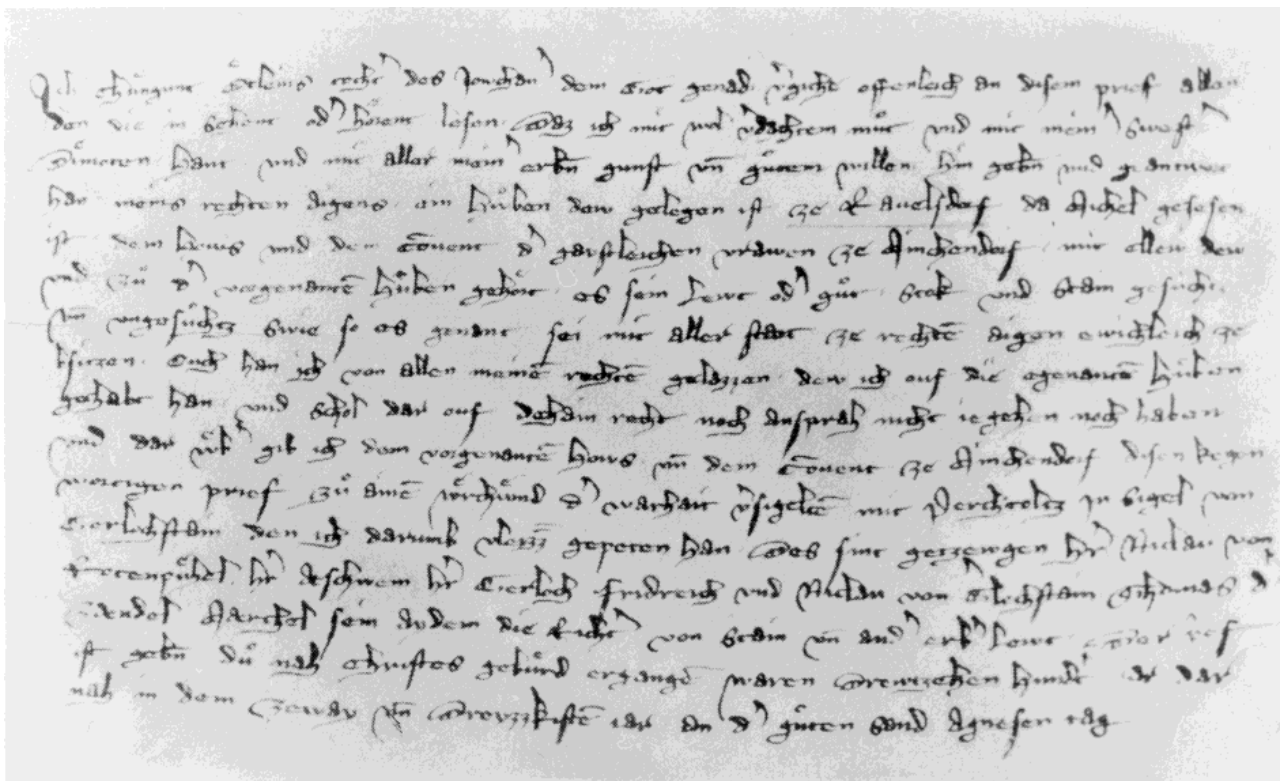 Ich Chůngunt Ötleins tocht' des Jowhan' dem Got genad v'gicht offenleich an disem prief allen
den die in sehent od' hörent lesen daz ich mit wol v'dachtem můt vnd mit mein' swest'
Diemoten hant vnd mit aller mein' erbn̄ gunst vn̄ gůtem willen hin gebn̄ vnd geantwrt
han meins rechten aigens ein hůben dew gelegen ist ze Rauelsdorf da Michel gesesen
ist dem hews vnd dem Conuent d' gaistleichen vrawen ze Minchendorf mit ellew dew
vnd zů d' vorgenantē hůben gehört es sein lewt od' gůt stok vnd stam gesůchtz
vn̄ vngesůchtz swie so es genant sei mit aller stat ze rechtē aigen ewichleich ze
bsitzen Ouch han ich von allen meinē rechtē gelazzen dew ich ouf die egenantē hůben
gehabt han vnd schol dar ouf dehain recht noch ansprah nicht iegehen noch haben
vnd dar vb' gib ich dem vorgenantē hows vn̄ dem Conuent ze Minchendorf disen kegen
wortigen prief zů ainē vrchund d' warhait v'sigeltē mit Perchtoltz Insigel von
Gerlochstain den ich darumb vleizz gepeten han Des sint getzewgen h'r Niclau von
Rotenpůhel h'r Aschwein h'r Gerloch Fridreich vnd Niclau von G'lochstain Thomas d'
Maerchel sein aydem die Richt' von Stain vn̄ and' erb' lewt Der prief
ist gebn̄ dů nah Christes gebůrd ergangē waren Drewtzehen hund't iar dar
nah in dem zway vn̄ Dreyzzkistē iar an d' gůten sand Agnesen tag